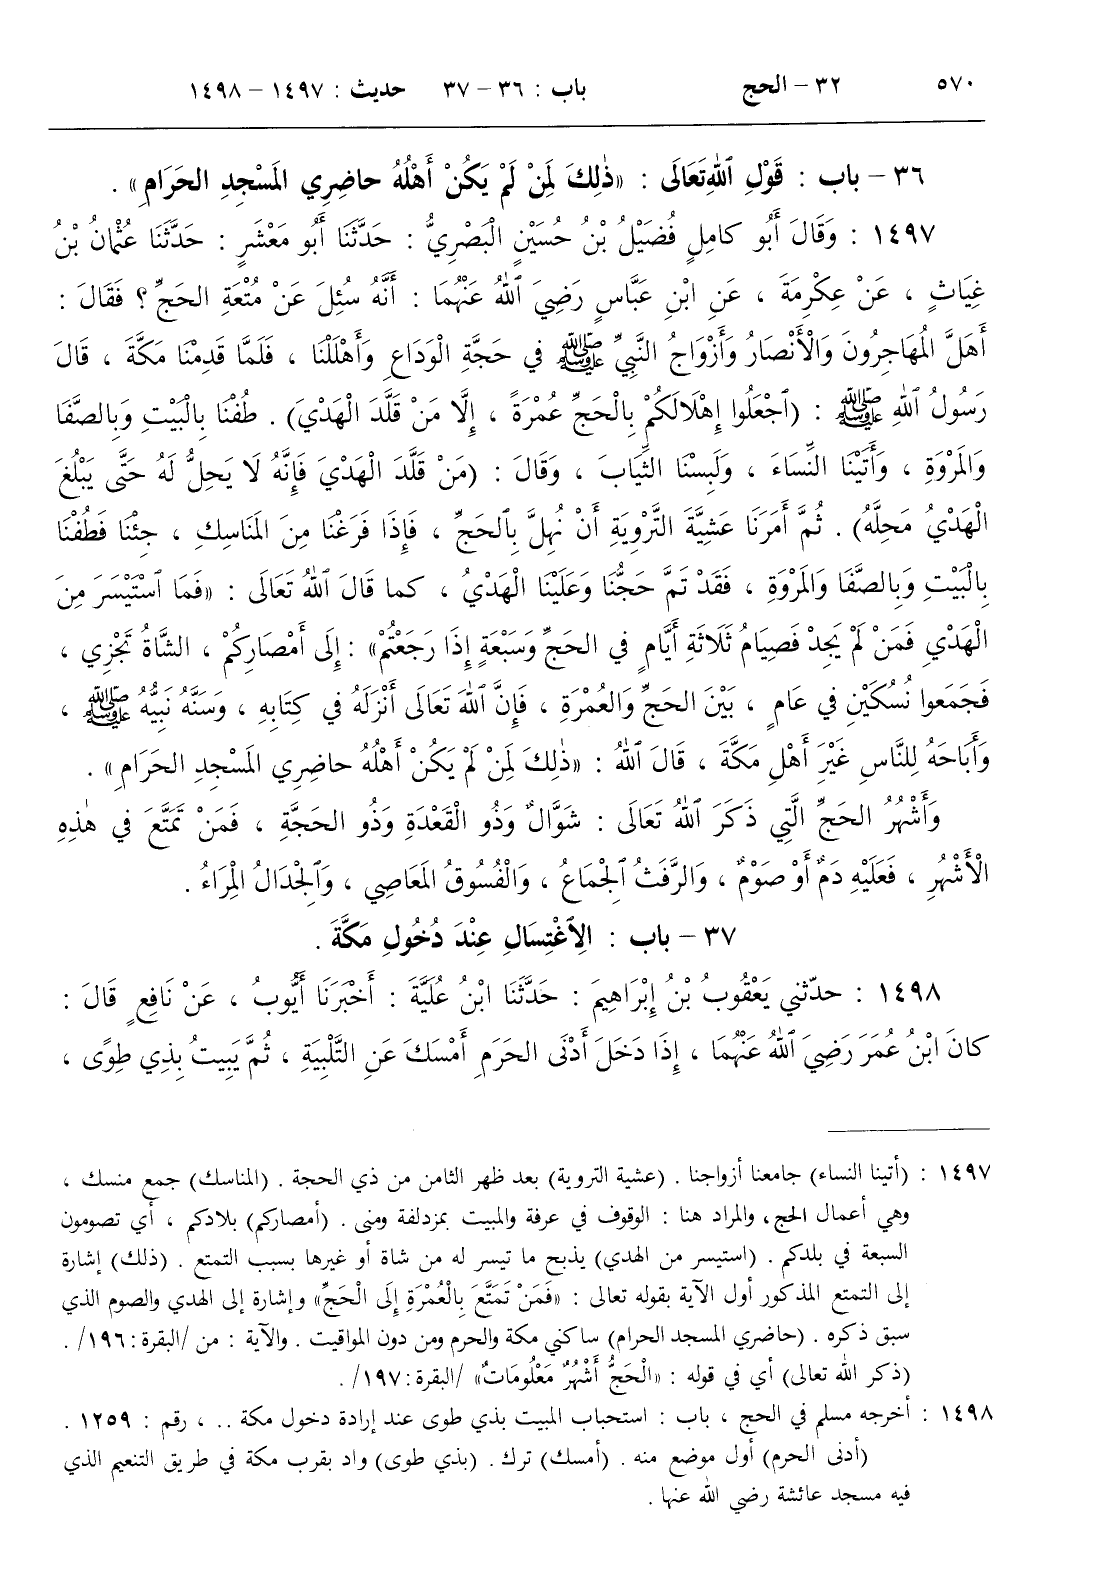 ٥٧٠ ٣٢ – الحج باب : ٣٦ – ٣٧ حديث : ١٤٩٧ – ١٤٩٨
٣٦ – باب : قَوْلِ ٱللهِ تَعَالَى : «ذٰلِكَ لِمَنْ لَمْ يَكُنْ أَهْلُهُ حاضِرِي المَسْجِدِ الحَرَامِ» .
١٤٩٧ : وَقَالَ أَبُو كامِلٍ فُضَيْلُ بْنُ حُسَيْنٍ الْبَصْرِيُّ : حَدَّثَنَا أَبُو مَعْشَرٍ : حَدَّثَنَا عُثْمَانُ بْنُ
غِيَاثٍ ، عَنْ عِكْرِمَةَ ، عَنِ ابْنِ عَبَّاسٍ رَضِيَ ٱللهُ عَنْهُمَا : أَنَّهُ سُئِلَ عَنْ مُتْعَةِ الحَجِّ ؟ فَقَالَ :
أَهَلَّ المُهَاجِرُونَ وَالْأَنْصَارُ وَأَزْوَاجُ النَّبِيِّ ﷺ في حَجَّةِ الْوَدَاعِ وَأَهْلَلْنَا ، فَلَمَّا قَدِمْنَا مَكَّةَ ، قَالَ
رَسُولُ ٱللهِ ﷺ : (ٱجْعَلُوا إِهْلَالَكُمْ بِالْحَجِّ عُمْرَةً ، إِلَّا مَنْ قَلَّدَ الْهَدْيَ) . طُفْنَا بِالْبَيْتِ وَبِالصَّفَا
وَالمَرْوَةِ ، وَأَتَيْنَا النِّسَاءَ ، وَلَبِسْنَا الثِّيَابَ ، وَقَالَ : (مَنْ قَلَّدَ الْهَدْيَ فَإِنَّهُ لَا يَحِلُّ لَهُ حَتَّى يَبْلُغَ
الْهَدْيُ مَحِلَّهُ) . ثُمَّ أَمَرَنَا عَشِيَّةَ التَّرْوِيَةِ أَنْ نُهِلَّ بِٱلحَجِّ ، فَإِذَا فَرَغْنَا مِنَ المَنَاسِكِ ، جِئْنَا فَطُفْنَا
بِالْبَيْتِ وَبِالصَّفَا وَالمَرْوَةِ ، فَقَدْ تَمَّ حَجُّنَا وَعَلَيْنَا الْهَدْيُ ، كما قَالَ ٱللهُ تَعَالَى : «فَمَا ٱسْتَيْسَرَ مِنَ
الْهَدْيِ فَمَنْ لَمْ يَجِدْ فَصِيَامُ ثَلَاثَةِ أَيَّامٍ في الحَجِّ وَسَبْعَةٍ إِذَا رَجَعْتُمْ» : إِلَى أَمْصَارِكُمْ ، الشَّاةُ تَجْزِي ،
فَجَمَعُوا نُسُكَيْنِ في عَامٍ ، بَيْنَ الحَجِّ وَالعُمْرَةِ ، فَإِنَّ ٱللهَ تَعَالَى أَنْزَلَهُ في كِتَابِهِ ، وَسَنَّهُ نَبِيُّهُ ﷺ ،
وَأَبَاحَهُ لِلنَّاسِ غَيْرَ أَهْلِ مَكَّةَ ، قَالَ ٱللهُ : «ذٰلِكَ لِمَنْ لَمْ يَكُنْ أَهْلُهُ حاضِرِي المَسْجِدِ الحَرَامِ» .
وَأَشْهُرُ الحَجِّ الَّتِي ذَكَرَ ٱللهُ تَعَالَى : شَوَّالٌ وَذُو الْقَعْدَةِ وَذُو الحَجَّةِ ، فَمَنْ تَمَتَّعَ في هٰذِهِ
الْأَشْهُرِ ، فَعَلَيْهِ دَمٌ أَوْ صَوْمٌ ، وَالرَّفَثُ ٱلْجِمَاعُ ، وَالْفُسُوقُ المَعَاصِي ، وَٱلْجِدَالُ الْمِرَاءُ .
٣٧ – باب : الِاغْتِسَالِ عِنْدَ دُخُولِ مَكَّةَ .
١٤٩٨ : حدّثني يَعْقُوبُ بْنُ إِبْرَاهِيمَ : حَدَّثَنَا ابْنُ عُلَيَّةَ : أَخْبَرَنَا أَيُّوبُ ، عَنْ نَافِعٍ قَالَ :
كانَ ابْنُ عُمَرَ رَضِيَ ٱللهُ عَنْهُمَا ، إِذَا دَخَلَ أَدْنَى الحَرَمِ أَمْسَكَ عَنِ التَّلْبِيَةِ ، ثُمَّ يَبِيتُ بِذِي طِوًى ،
١٤٩٧ : (أتينا النساء) جامعنا أزواجنا . (عشية التروية) بعد ظهر الثامن من ذي الحجة . (المناسك) جمع منسك ،
وهي أعمال الحج، والمراد هنا : الوقوف في عرفة والمبيت بمزدلفة ومنى . (أمصاركم) بلادكم ، أي تصومون
السبعة في بلدكم . (استيسر من الهدي) يذبح ما تيسر له من شاة أو غيرها بسبب التمتع . (ذلك) إشارة
إلى التمتع المذكور أول الآية بقوله تعالى : «فَمَنْ تَمَتَّعَ بِالْعُمْرَةِ إِلَى الْحَجِّ» وإشارة إلى الهدي والصوم الذي
سبق ذكره . (حاضري المسجد الحرام) ساكني مكة والحرم ومن دون المواقيت . والآية : من /البقرة:١٩٦/ .
(ذكر الله تعالى) أي في قوله : «الْحَجُّ أَشْهُرٌ مَعْلُومَاتٌ» /البقرة:١٩٧/ .
١٤٩٨ : أخرجه مسلم في الحج ، باب : استحباب المبيت بذي طوى عند إرادة دخول مكة .. ، رقم : ١٢٥٩ .
(أدنى الحرم) أول موضع منه . (أمسك) ترك . (بذي طوى) واد بقرب مكة في طريق التنعيم الذي
فيه مسجد عائشة رضي الله عنها .